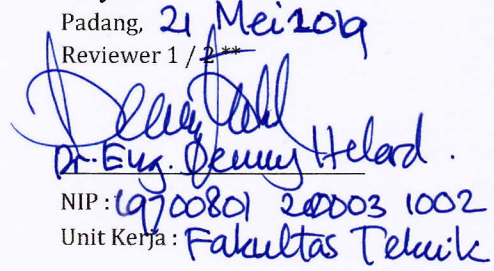 Padang, 21 Mei 2019
Reviewer 1 / 2 **
Dr. Eng. Denny Helard.
NIP : 19700801 200003 1002
Unit Kerja : Fakultas Teknik